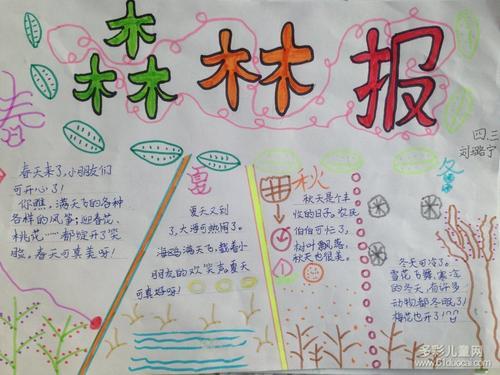 森林报
四三
刘璐宁
春
春天来了,小朋友们
可开心了!
你瞧,满天飞的各种
各样的风筝;迎春花、
桃花……都绽开了笑
脸,春天可真美呀!
夏
夏天又到
了,大海可热闹了。
海鸥满天飞,载着小
朋友的欢笑声,夏天
可真好呀!
秋
秋天是个丰
收的日子。农民
伯伯可忙了,
树叶飘落,
秋天也很美。
冬
冬天可冷了。
雪花飞舞,寒冷
的冬天,有许多
动物都冬眠了!
梅花也开了!
多彩儿童网
www.61duocai.com